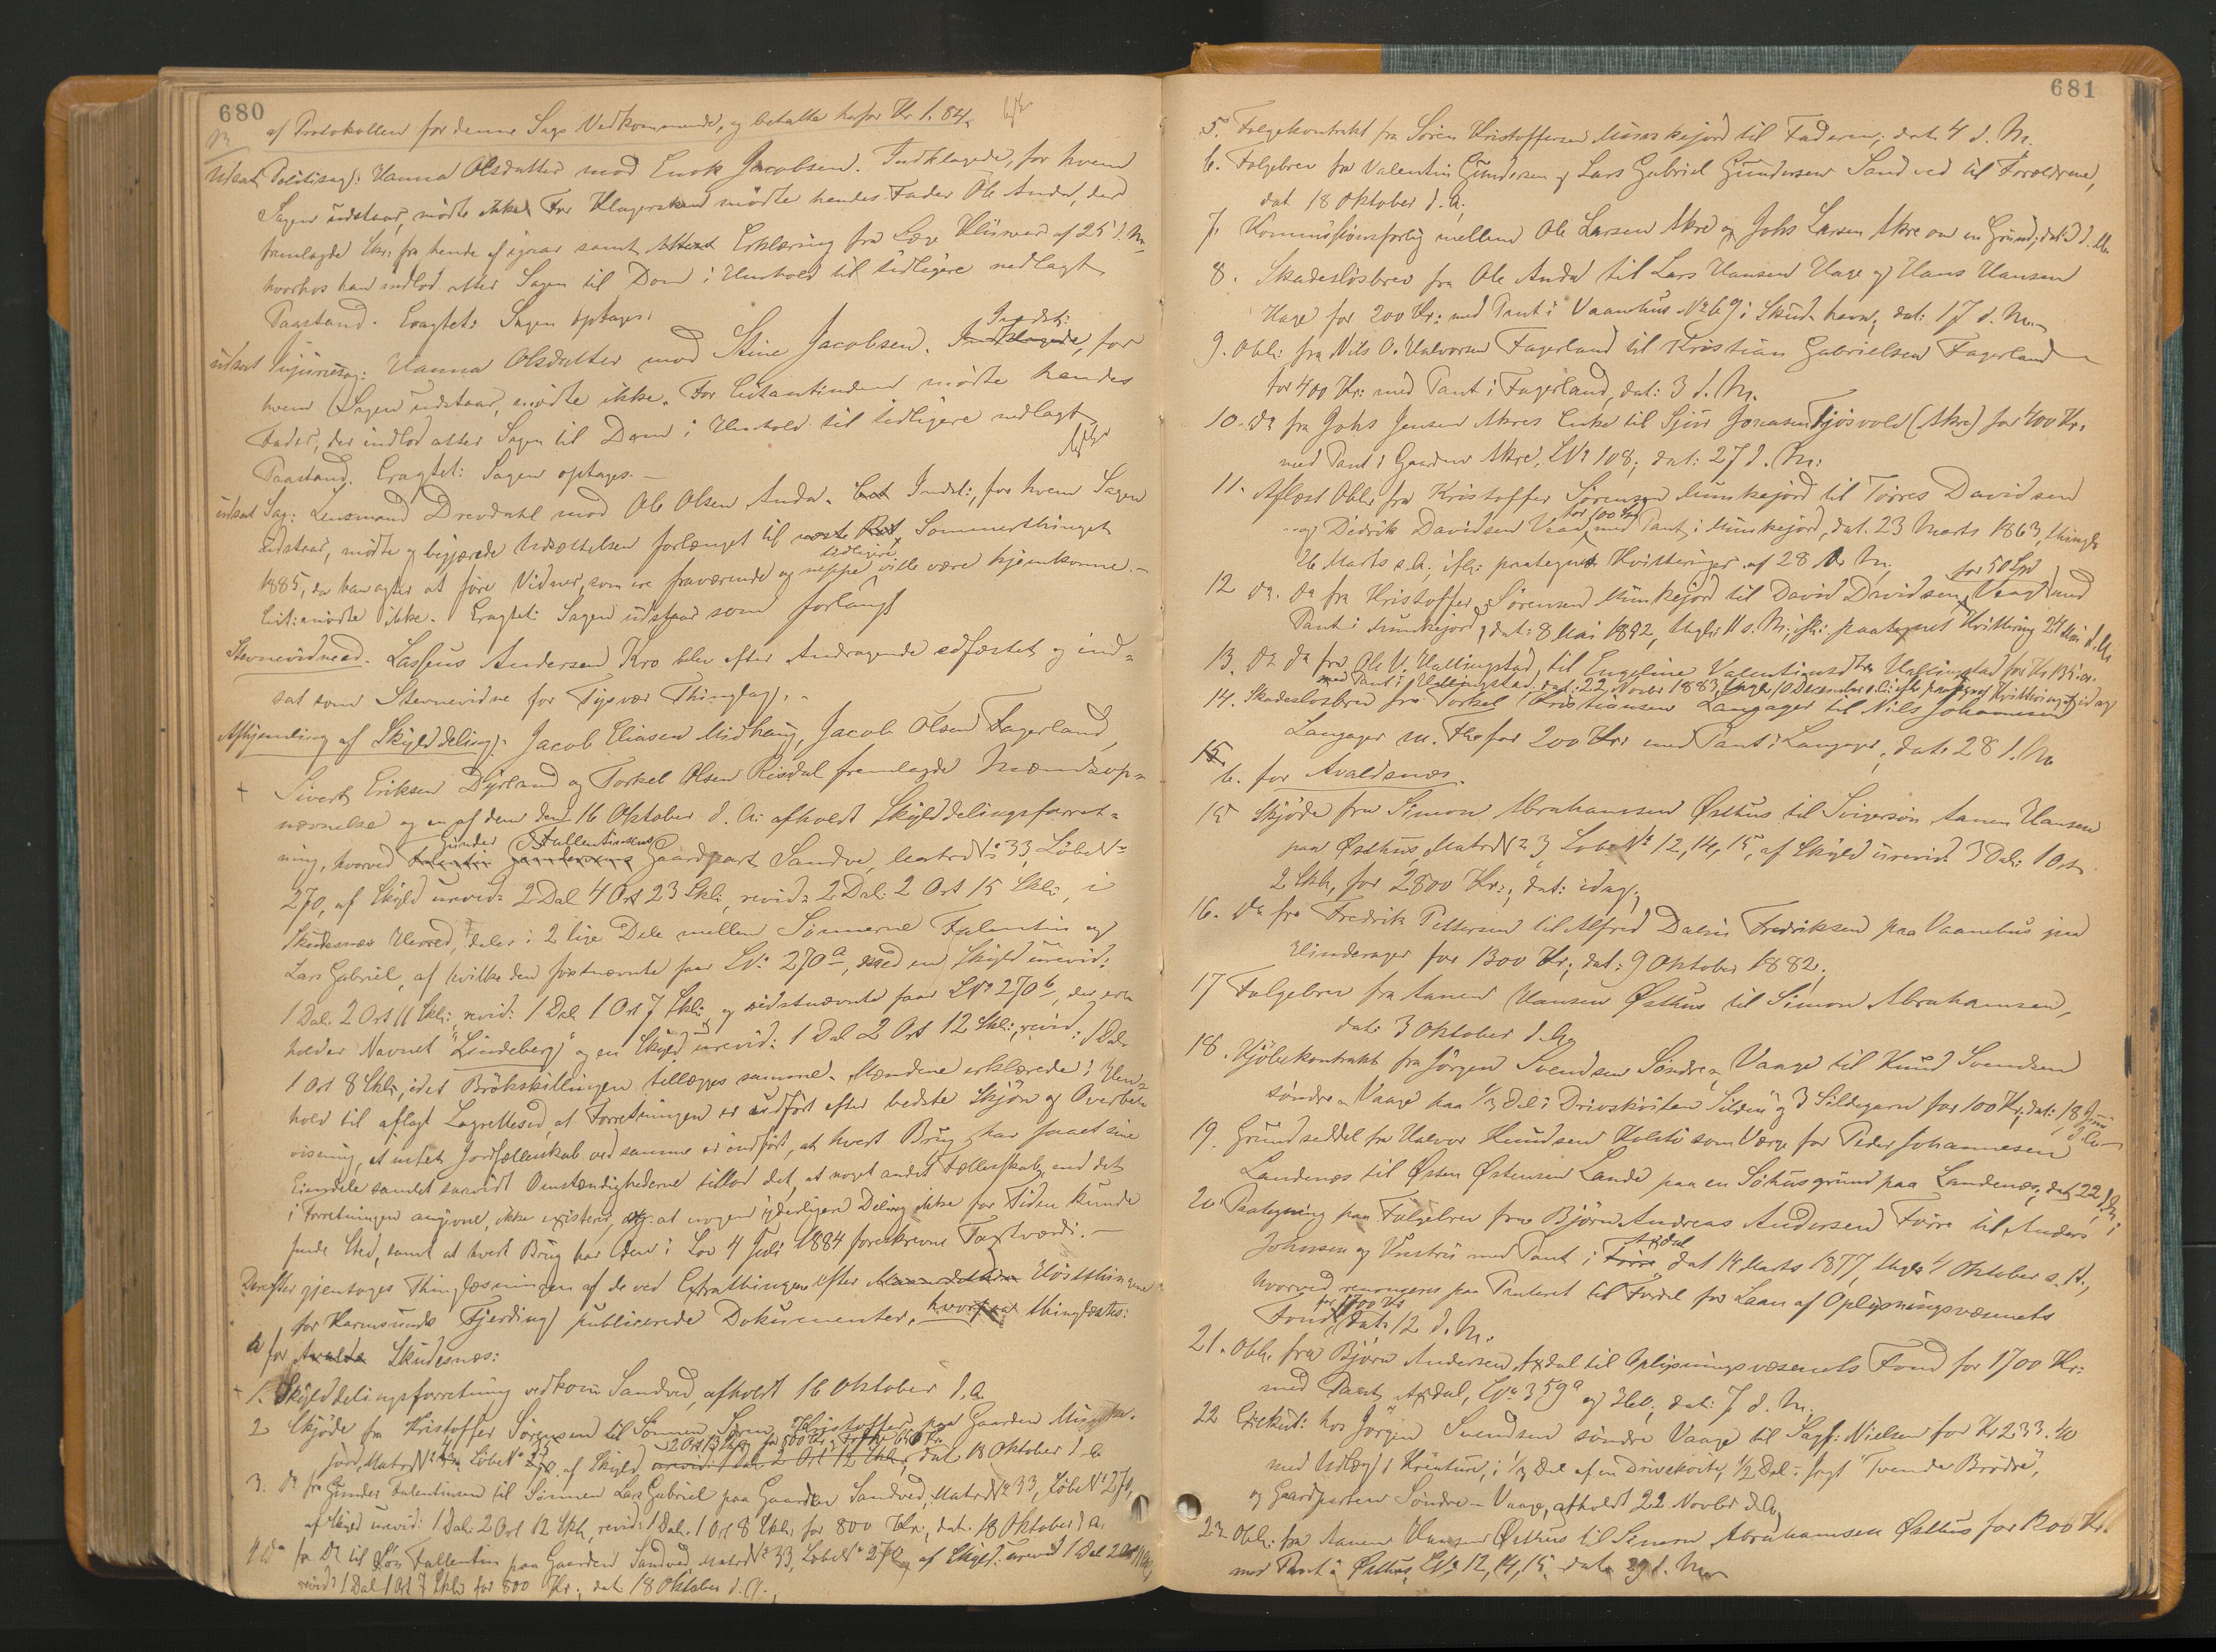 680
af Protokollen for denne Sags Vedkommende, og betalte herfor Kr 1.84.
Udsat Politisag: Hanna Olsdatter mod Enok Jacobsen. Indklagede, for hvem
Sagen udstaar, mødte ikke. For Klagersken mødte hendes Fader Ole Anda, der
fremlagde Skr: fra hende af igaar samt Erklæring fra Læge af 25 d. M.
hvorhos han indlod atter Sagen til Dom i Henhold til tidligere nedlagt
Paastand. Eragtet: Sagen optages.
udsat Injuriesag: Hanna Olsdatter mod Stine Jacobsen. Indst: Indklagede, for
hvem Sagen udstaar, mødte ikke. For Citantinden mødte hendes
Fader, der indlod atter Sagen til Dom i Henhold til tidligere nedlagt
Paastand. Eragtet: Sagen optages. —
udsat Sag: Lensmand Drevdahl mod Ole Olsen Anda. Cit Indst:, for hvem Sagen
udstaar, mødte og begjærede Udsættelsen forlænget til næste Ret Sommerthinget
1885, da han agter at føre Vidner, som ere fraværende og neppe tidligere ville være hjemkomne. —
Cit: mødte ikke. Eragtet: Sagen udstaar som forlangt
Stevnevidneed. Lassæus Andersen Kro blev efter Andragende edfæstet og ind-
sat som Stevnevidne for Tysvær Thinglag. —
Afhjemling af Skylddeling: Jacob Eliasen Midhaug, Jacob Olsen Fagerland,
+ Sivert Eriksen Dyrland og Torkel Olsen Risdal fremlagde Mændsop-
nævnelse og en af dem den 16 Oktober d. A: afholdt Skylddelingsforret-
ning, hvorved Gunder Fallentinsens Gaardpart Sandve, Matr№ 33, Løbe№
270, af Skyld urevid: 2 Dal 4 Ort 23 Skl:, revid: 2 Dal: 2 Ort 15 Skl:, i
Skudesnes Herred, deles i 2 lige Dele mellem Sønnerne Falentin og
Lars Gabriel, af hvilke den førstnævnte faar L№ 270ᵃ, med en Skyld urevid:
1 Dal. 2 Ort 11 Skl:, revid: 1 Dal 1 Ort 7 Skl:, og sidstnævnte faar L№ 270ᵇ, der er
holder Navnet "Lindeberg" og en Skyld urevid: 1 Dal 2 Ort 12 Skl:, revid: 1 Dal
1 Ort 8 Skl:, idet Brøkskillingen tillægges samme. Mændene erklærede i Hen-
hold til aflagt Lagrettesed, at Forretningen er udført efter bedste Skjøn og Overbe-
visning, at intet Jordfællesskab ved samme er indført, at hvert Brug har faaet sine
Eiendele samlet saavidt Omstændighederne tillod det, at noget andet Fællesskab, end det
i Forretningen angivne, ikke existerer, og at nogen yderligere Deling ikke for Tiden kunde
finde Sted, samt at hvert Brug har den i Lov 4 Juli 1884 foreskrevne Taxtværdi. —
Derefter gjentoges Thinglæsningen af de ved Extrathingene efter Høstthingene
for Karmsunds Fjerding publicerede Dokumenter, hvorpaa thinglæstes:
a for Avalds Skudesnæs:
+ 1. Skylddelingsforretning vedkom: Sandved, afholdt 16 Oktober d. A.
2 Skjøde fra Kristoffer Sørensen til Sønnen Søren Kristoffersen paa Gaarden Munke-
jord, Matr№ Løbe№ af Skyld urevid: 1 Dal 2 Ort 12 Skl:, dat 18 Oktober d. A
3. Do fra Gunder Falentinsen til Sønnen Lars Gabriel paa Gaarden Sandved, Matr№ 33, Løbe№ 270,
af Skyld urevid: 1 Dal: 2 Ort 12 Skl, revid: 1 Dal. 1 Ort 8 Skl: for 800 Kr:, dat: 18 Oktober d. A:
4 Do fra Do til Søn Fallentin paa Gaarden Sandved, Matr№ 33, Løbe№ 270 af Skyld: urevid 1 Dal 2 Ort 11 Skl,
revid: 1 Dal 1 Ort 7 Skl: for 800 Kr:, dat: 18 Oktober d. A.
681
5. Følgekontrakt fra Søren Kristoffersen Munkejord til Faderen; dat. 4 d. M.
6. Følgebrev fra Valentin Gundersen og Lars Gabriel Gundersen Sandved til Forældrene,
dat 18 Oktober d. A.
7. Kommissionsforlig mellem Ole Larsen Akre og Johs Larsen Akre om en Grund; dat: d. M.
8. Skadesløsbrev fra Ole Anda til Lars Hansen Hage og Hans Hansen
Hage for 200 Kr: med Pant i Vaanehus № 69 i Skudehavn; dat: 17 d. M. —
9. Obli: fra Nils O. Halvorsen Fagerland til Kristian Gabrielsen Fagerland
for 400 Kr: med Pant i Fagerland, dat: 3 d. M.
10. Do fra Johs Jensen Akres Enke til Sjur Jonasen Tjøsvold (Akre) for 400 Kr.
med Pant i Gaarden Akre, L№ 108; dat: 27 d. M:
11. Aflæst Obli: fra Kristoffer Sørensen Munkejord til Tørres Davidsen
og Didrik Davidsen Vea med Pant i Munkejord, dat. 23 Marts 1863, thingl:
26 Marts s. A., ifl: paategnet Kvitteringer af 28 d. M.
12 Do. Do fra Kristoffer Sørensen Munkejord til David Davidsen Veag for 50 Spd med
Pant i Munkejord, dat: 8 Mai 1842, thgl: 11 s. M:, ifl: paategnet Kvittering 24 Mai d. A.
13. Do Do fra Ole V. Hallingstad, til Engeline Valentinsdtr Hallingstad for Kr
med Pant i Hallingstad, dat: 22 Novbr 1883, thgl: 10 December s. A: ifl: paategnet Kvittering af idag
14. Skadesløsbrev fra Torkel Kristiansen Langager til Nils Johannesen
Langager m. Fl: for 200 Kr: med Pant i Langager; dat: 28 d. M.
15.
b. for Avaldsnæs.
15 Skjøde fra Simon Abrahamsen Østhus til Svigersøn Aanen Hansen
paa Østhus, Matr№ 3, Løbe№ 12, 14, 15, af Skyld urevid: 3 Dal: 1 Ort
2 Skl:, for 2800 Kr:, dat: idag.
16. Do fra Fredrik Pettersen til Alfred Dalin Fredriksen paa Vaanehus paa
Hinderager for 1300 Kr:, dat: 9 Oktober 1882.
17 Følgebrev fra Aanen Hansen Østhus til Simon Abrahamsen,
dat: 3 Oktober d. A.
18. Kjøbekontrakt fra Jørgen Svendsen Søndre Vaage til Knud Svendsen
søndre Vaage paa 1/3 Del i Drivskøiten "Silden" og 3 Sildegarn for 100 Kr:, dat: 18 Juni
d. A. —
19. Grundseddel fra Halvor Knudsen Kolstø som Værge for Peder Johannesen
Landenæs til Østen Østensen Lande paa en Søhusgrund paa Landenæs; dat: 22 d. M.
20 Paategning paa Følgebrev fra Bjørn Andreas Andersen Førre til Anders
Johnsen og Hustru med Pant i Førre Axdal, dat 14 Marts 1877, thgl: 4 Oktober s. A.,
hvorved renonceres paa Panteret til Fordel for Laan af Oplysningsvæsenets
Fond for 1700 Kr, dat: 12 d. M.
21. Obli. fra Bjørn Andersen Axdal til Oplysningsvæsenets Fond for 1700 Kr:
med Pant, Axdal, L№ 359ᵃ og 360, dat: 7 d. M.
22 Exekut: hos Jørgen Svendsen søndre Vaage til Sagf: Nielsen for Kr 233.40
med Udlæg i Kreature, i 1/3 Del af en Drivskøite, 1/2 Del i Jagt "Tvende Brødre",
og Gaardparten Søndre-Vaage, afholdt 22 Novbr d. A.
23. Obli: fra Aanen Hansen Østhus til Simon Abrahamsen Østhus for 1200 Kr.
med Pant i Østhus, L№ 12, 14, 15, dat: 29 d. M.